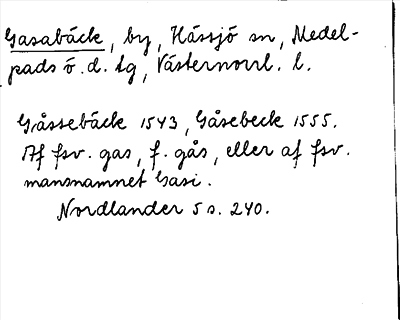 Gasabäck, by, Hässjö sn, Medel-
pads ö. d. tg, Västernorrl. l.
Gåssebäck 1543, Gåsebeck 1555.
Af fsv. gas, f. gås, eller af fsv.
mansnamnet Gasi.
Nordlander 5 s. 240.